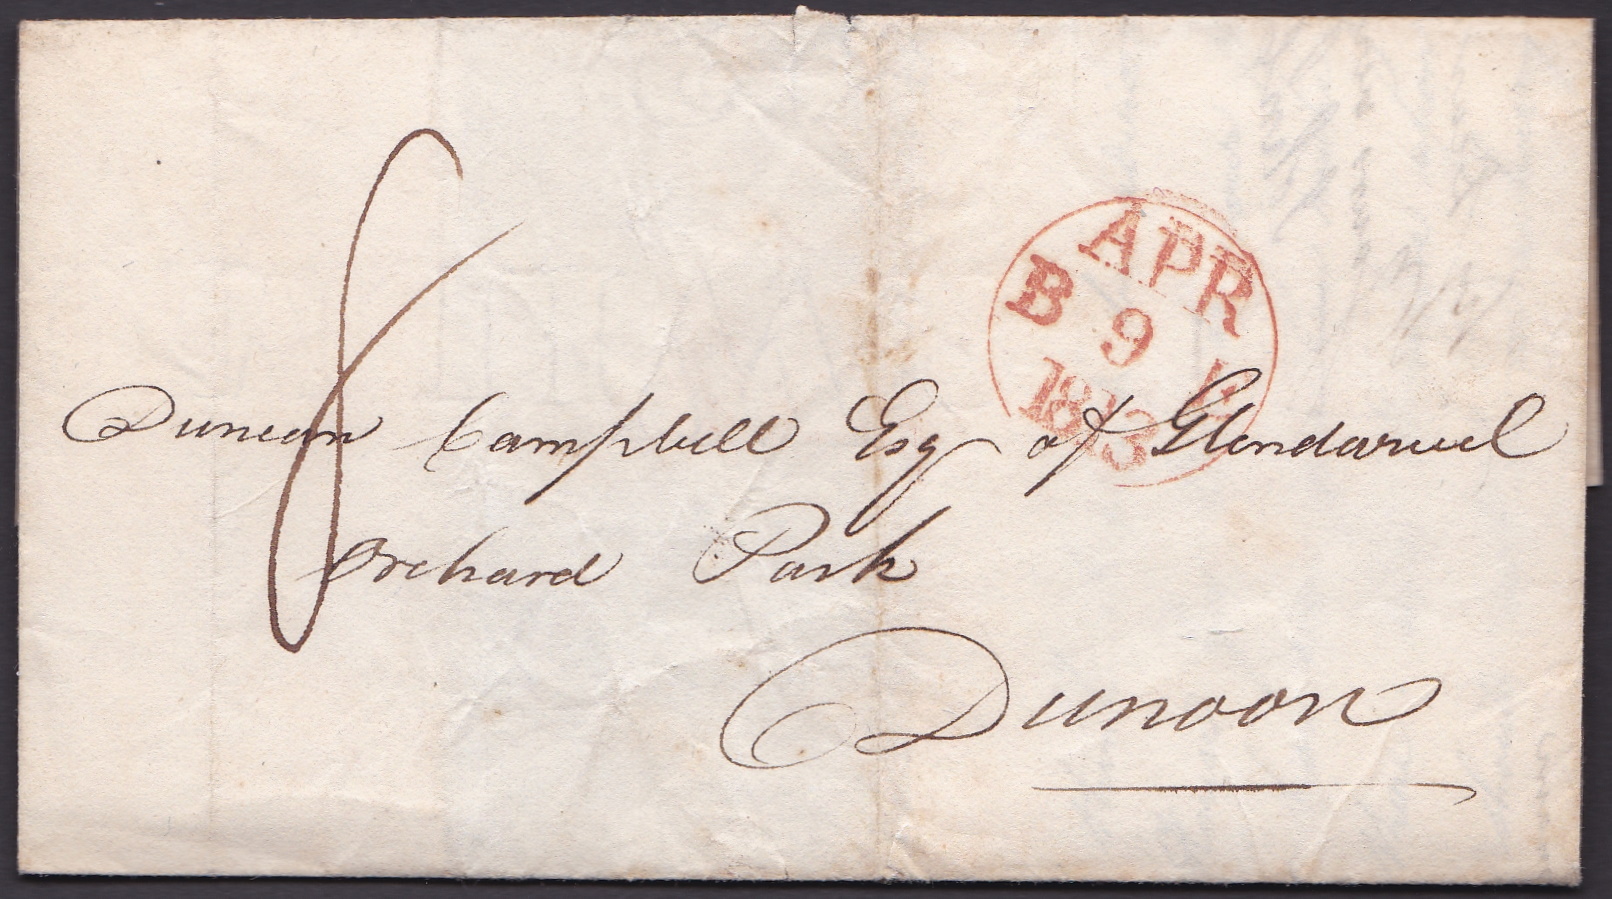 8
APR
B 9 E
1813
Duncan Campbell Esq of Glendaruel
Orchard Park
Dunoon